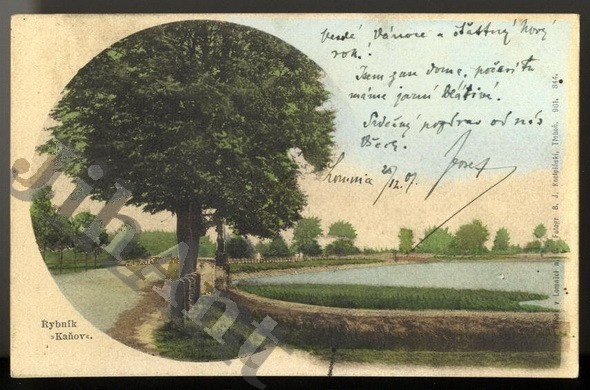 Veselé Vánoce a šťastný nový
rok!
Jsem zan doma, počasí tu
máme jarní
Srdečný pozdrav od nás
Všech.
Josef
Lomnice 20/12. 07.
Rybník
»Kaňov«.
v Lomnici n. Fotogr. B. J. Kostpinski, Třeboň. 901. 844.
JihAnt